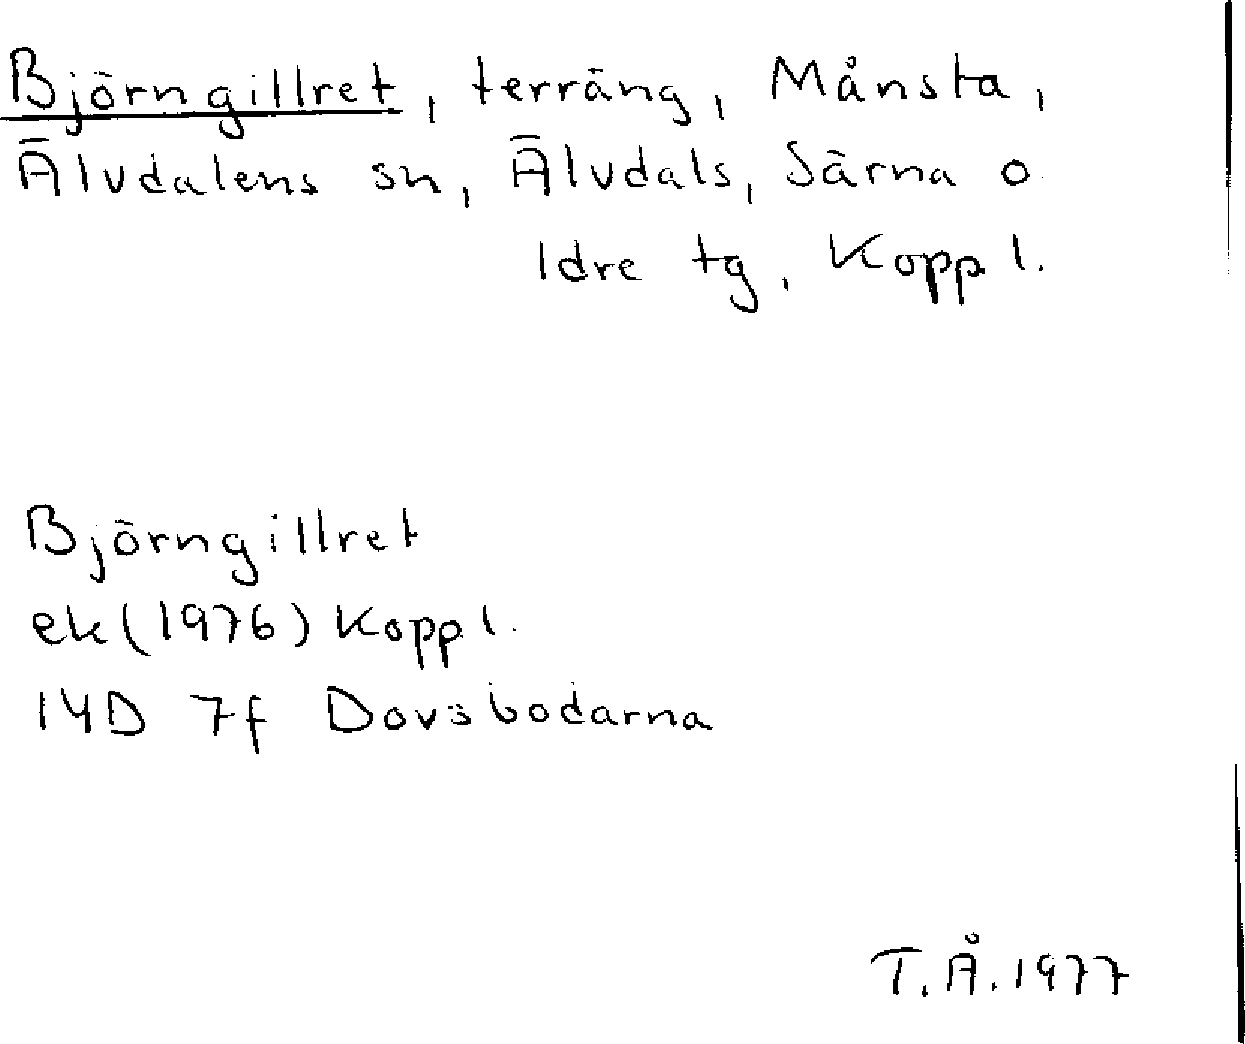 Björngillret, terräng, Månsta,
Älvdalens sn, Älvdals, Särna o
Idre tg, Kopp l.
Björngillret
ek (1976) Kopp l.
14D 7f Dovsbodarna
T.Å. 1977